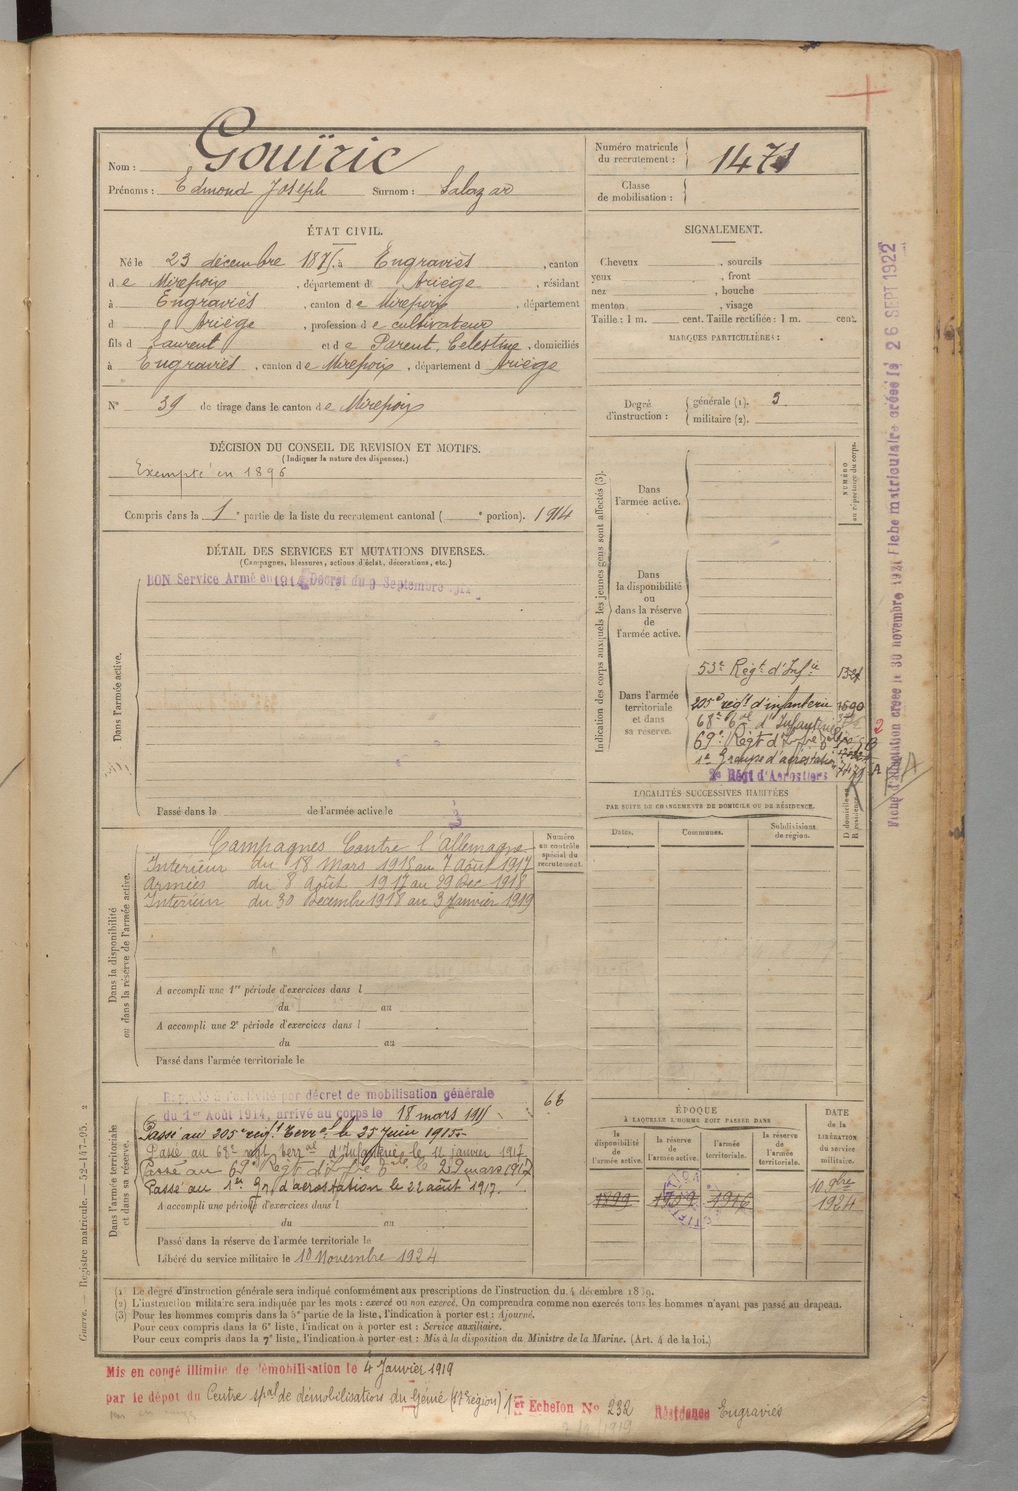 Nom : Gouïric
Prénoms : Edmond Joseph Surnom : Salazar
Numéro matricule du recrutement : 1471
Classe de mobilisation :
ÉTAT CIVIL.
Né le 23 décembre 1875, à Engraviès, canton
de Mirepoix, département d l'Ariège, résidant
à Engraviès, canton de Mirepoix, département
d l'Ariège, profession de cultivateur
fils d Laurent et de Parent, Célestine, domiciliés
à Engraviès, canton de Mirepoix, département d Ariège
N° 39 de tirage dans le canton de Mirepoix
SIGNALEMENT.
Cheveux , sourcils
yeux , front
nez , bouche
menton , visage
Taille : 1 m. cent. Taille rectifiée : 1 m. cent.
MARQUES PARTICULIÈRES :
Degré d'instruction : générale (1). 3
militaire (2).
DÉCISION DU CONSEIL DE REVISION ET MOTIFS.
(Indiquer la nature des dispenses.)
Exempté en 1896
Compris dans la 1e partie de la liste du recrutement cantonal ( e portion). 1914
DÉTAIL DES SERVICES ET MUTATIONS DIVERSES.
(Campagnes, blessures, actions d'éclat, décorations, etc.)
Dans l'armée active.
BON Service Armé en 1914 Décret du 9 Septembre
Passé dans la de l'armée active le
Indication des corps auxquels les jeunes gens sont affectés (3).
NUMÉRO au répertoire du corps.
Dans l'armée active.
Dans la disponibilité ou dans la réserve de l'armée active.
Dans l'armée territoriale et dans sa réserve.
53e Régt d'Infie
205e régt d'infanterie 1690
68e d'Infanterie
69e Régt d'Infie
1er Groupe d'aérostation
2e Régt d'Aérostiers
Dans la disponibilité ou dans la réserve de l'armée active.
Campagnes Contre l'Allemagne
Intérieur du 18 Mars 1915 au 7 Août 1917
Armées du 8 Août 1917 au 29 Déc 1918
Intérieur du 30 Décembre 1918 au 3 Janvier 1919
A accompli une 1re période d'exercices dans l
du au
A accompli une 2e période d'exercices dans l
du au
Passé dans l'armée territoriale le
Numéro au contrôle spécial du recrutement.
66
LOCALITÉS SUCCESSIVES HABITÉES
PAR SUITE DE CHANGEMENTS DE DOMICILE OU DE RÉSIDENCE.
Dates. Communes. Subdivisions de région. D domicile ou R résidence.
Dans l'armée territoriale et dans sa réserve.
Rappelé à l'activité par décret de mobilisation générale
du 1er Août 1914, arrivé au corps le 18 mars 1915
Passé au 205e régt Terral le 25 Juin 1915
Passé au 68e régt terral d'Infanterie le 11 janvier 1917
Passé au 69e Régt d'Infie le 29 mars 1917
Passé au 1er Gr. d'aérostation le 22 août 1917.
A accompli une période d'exercices dans l
du au
Passé dans la réserve de l'armée territoriale le
Libéré du service militaire le 10 Novembre 1924
ÉPOQUE
À LAQUELLE L'HOMME DOIT PASSER DANS
la disponibilité de l'armée active. la réserve de l'armée active. l'armée territoriale. la réserve de l'armée territoriale.
DATE de la LIBÉRATION du service militaire.
1899 1909 1916
10 9bre 1924
(1) Le degré d'instruction générale sera indiqué conformément aux prescriptions de l'instruction du 4 décembre 1889.
(2) L'instruction militaire sera indiquée par les mots : exercé ou non exercé. On comprendra comme non exercés tous les hommes n'ayant pas passé au drapeau.
(3) Pour les hommes compris dans la 5e partie de la liste, l'indication à porter est : Ajourné.
Pour ceux compris dans la 6e liste, l'indication à porter est : Service auxiliaire.
Pour ceux compris dans la 7e liste, l'indication à porter est : Mis à la disposition du Ministre de la Marine. (Art. 4 de la loi.)
Mis en congé illimité de démobilisation le 4 Janvier 1919
par le dépôt du Centre spal de démobilisation du Génie (17e région) 1er Echelon No 232 Résidence Engraviès
Guerre. — Registre matricule. — 52-147-95. 2
Fiche matriculaire créée le 26 SEPT 1922